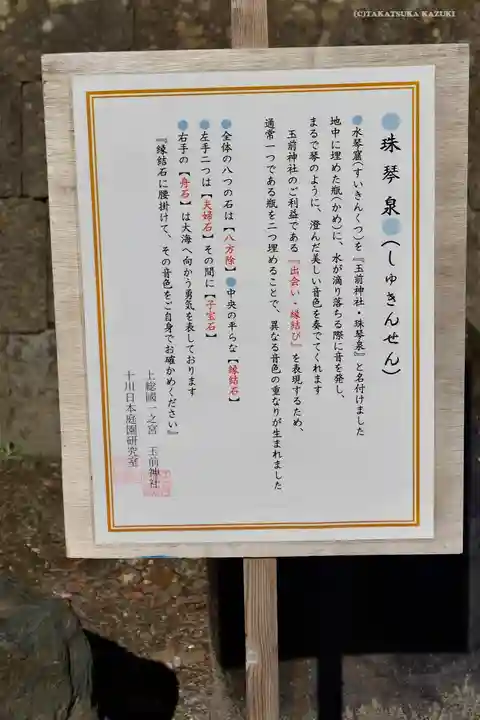 (C)TAKATSUKA KAZUKI
●珠琴泉●(しゅきんせん)
●水琴窟(すいきんくつ)を『玉前神社・珠琴泉』と名付けました
地中に埋めた瓶(かめ)に、水が滴り落ちる際に音を発し、
まるで琴のように、澄んだ美しい音色を奏でてくれます
玉前神社のご利益である『出会い・縁結び』を表現するため、
通常一つである瓶を二つ埋めることで、異なる音色の重なりが生まれました
●全体の八つの石は【八方除】●中央の平らな【縁結石】
●左手二つは【夫婦石】その間に【子宝石】
●右手の【舟石】は大海へ向かう勇気を表しております
『縁結石に腰掛けて、その音色をご自身でお確かめください』
上総國一之宮 玉前神社
十川日本庭園研究室